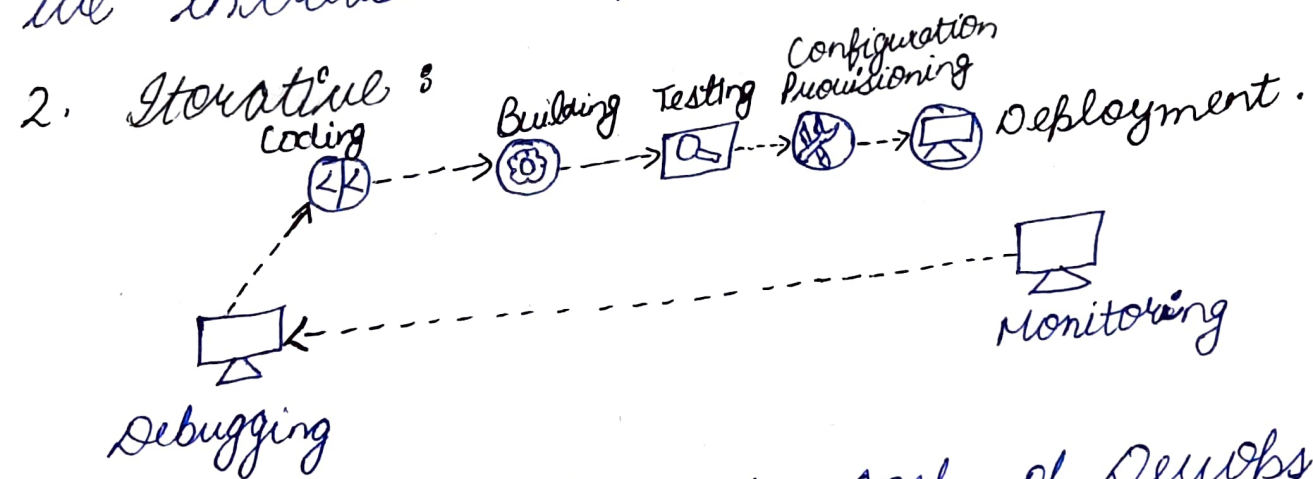 2. Iterative :
Coding
Building
Testing
Configuration
Provisioning
Deployment.
Monitoring
Debugging
of DevOps